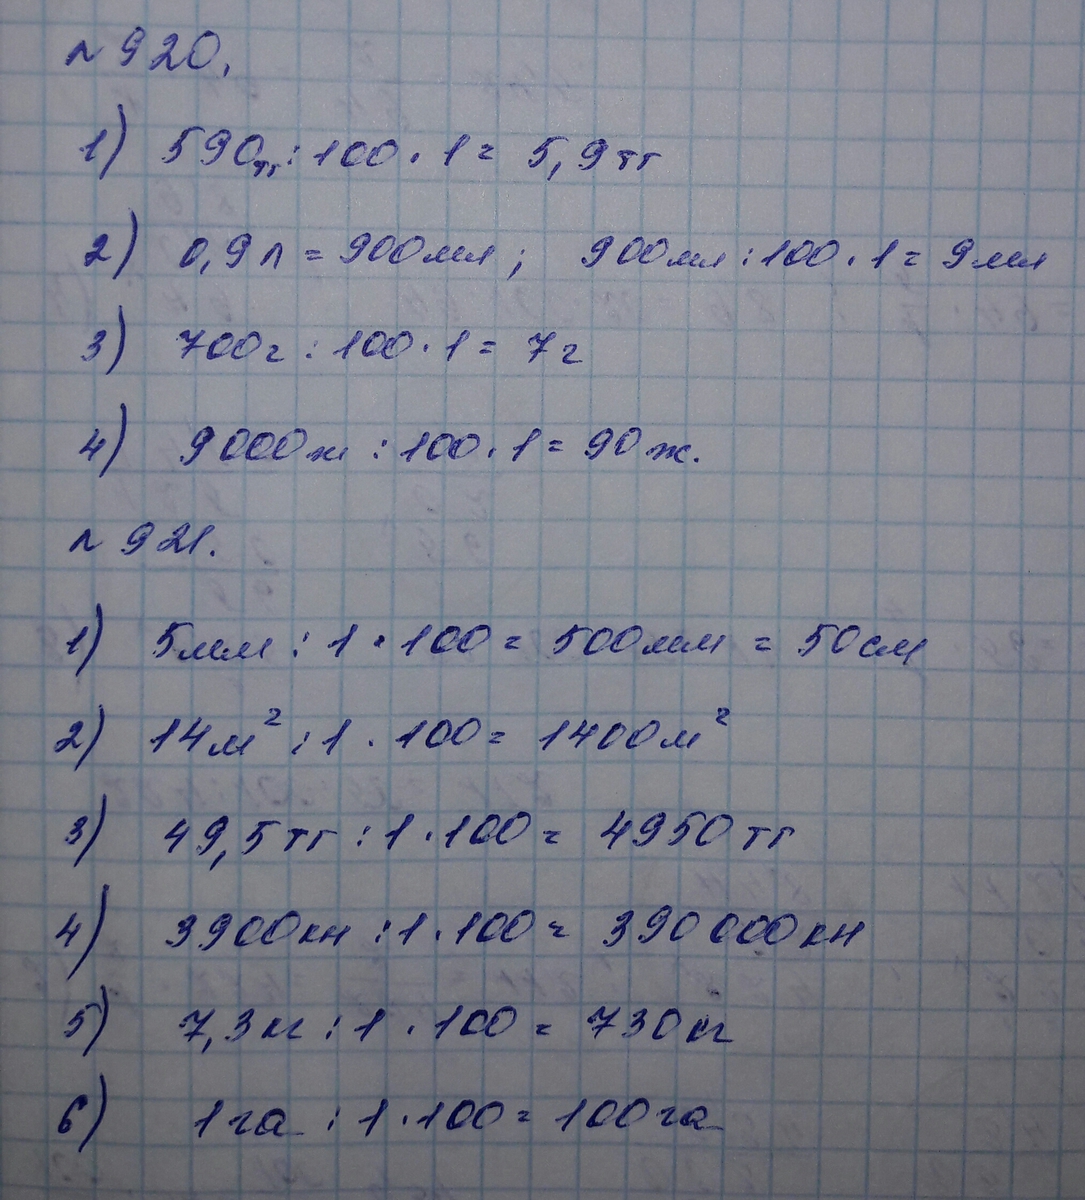 № 920.
1) 590тг : 100 · 1 = 5,9 тг
2) 0,9 л = 900 мл ; 900 мл : 100 · 1 = 9 мл
3) 700 г : 100 · 1 = 7 г
4) 9000 ж : 100 · 1 = 90 ж.
№ 921.
1) 5 мм : 1 · 100 = 500 мм = 50 см
2) 14 м² : 1 · 100 = 1400 м²
3) 49,5 тг : 1 · 100 = 4950 тг
4) 3900 кн : 1 · 100 = 390 000 кн
5) 7,3 кг : 1 · 100 = 730 кг
6) 1 га : 1 · 100 = 100 га